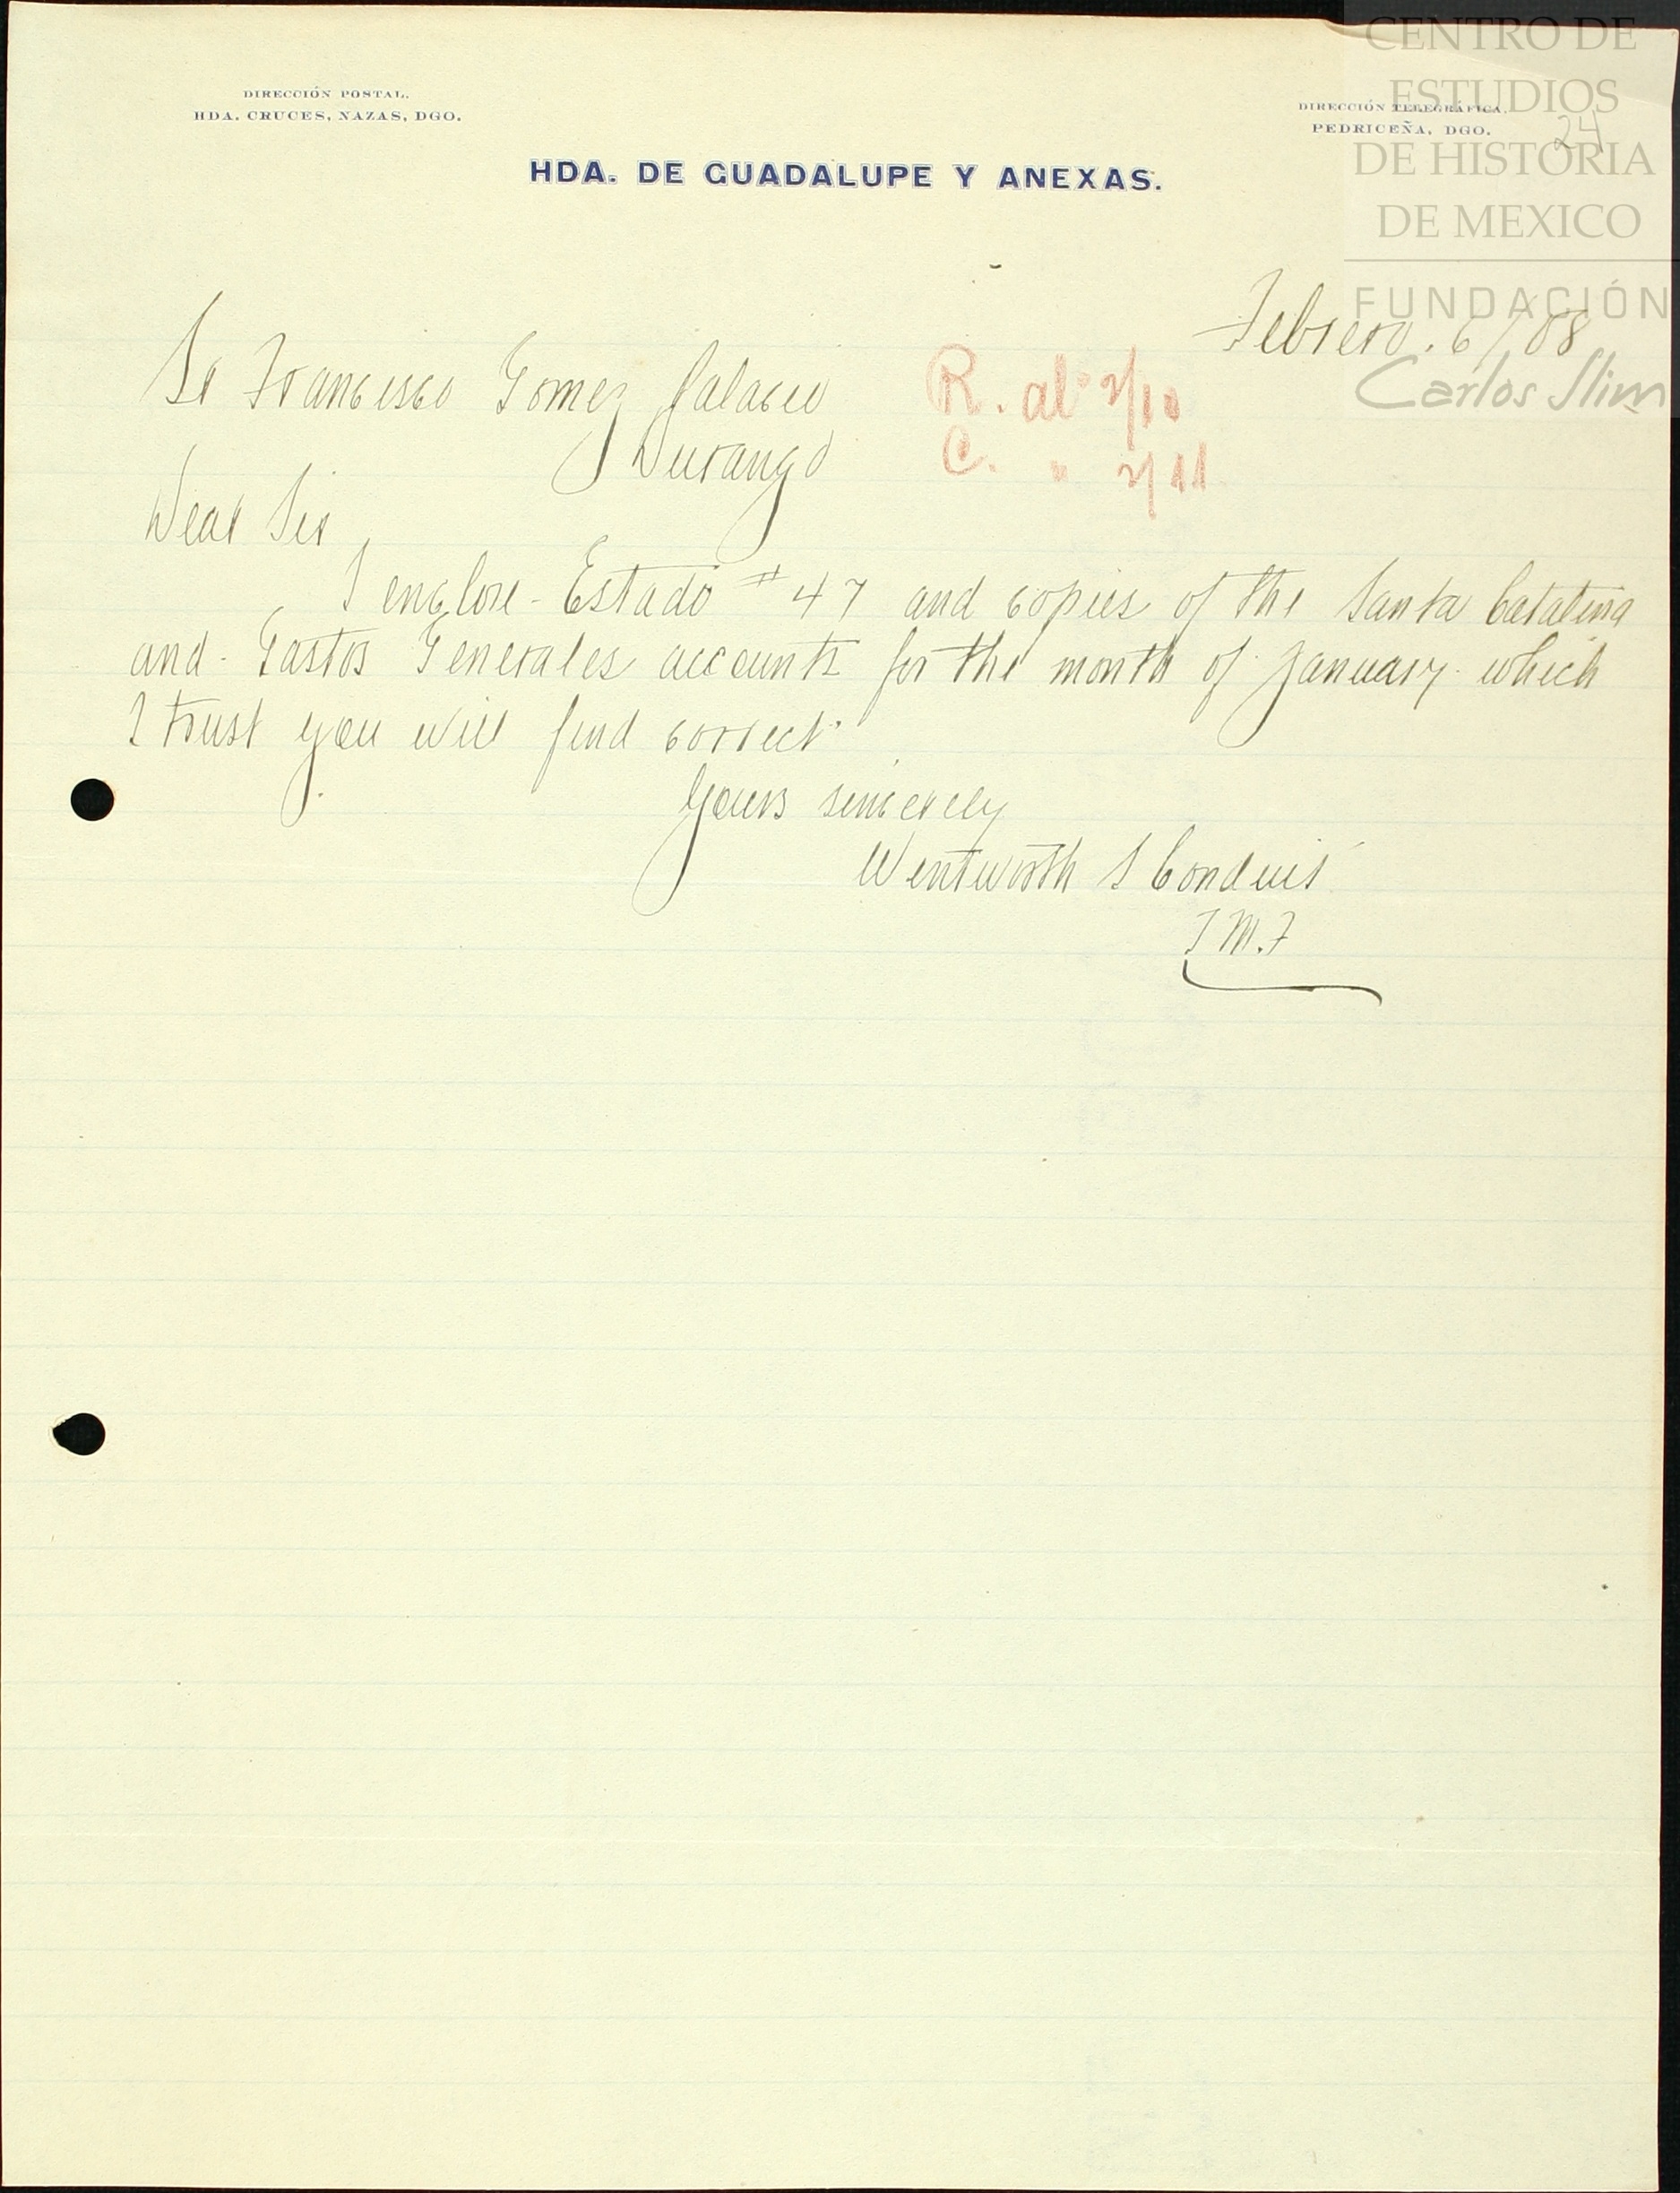 DIRECCIÓN POSTAL.
HDA. CRUCES, NAZAS, DGO.
DIRECCIÓN TELEGRÁFICA.
PEDRICEÑA, DGO.
24
HDA. DE GUADALUPE Y ANEXAS.
CENTRO DE
ESTUDIOS
DE HISTORIA
DE MEXICO
FUNDACIÓN
Carlos Slim
Febrero. 6/08
Sr Francisco Gomez Palacio
Durango
R. al 2/10
C. " 2/11
Dear Sir
I enclose Estado # 47 and copies of the Santa Catalina
and Gastos Generales accounts for the month of January which
I trust you will find correct
Yours sincerely
Wentworth S Conduit